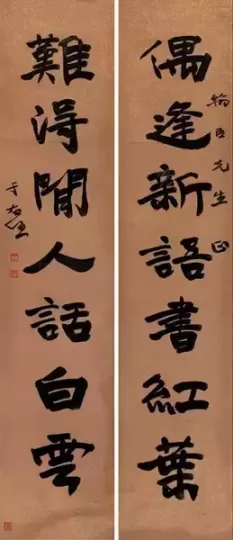 偶逢新語書紅葉
先生正
難得閒人話白雲
于右任